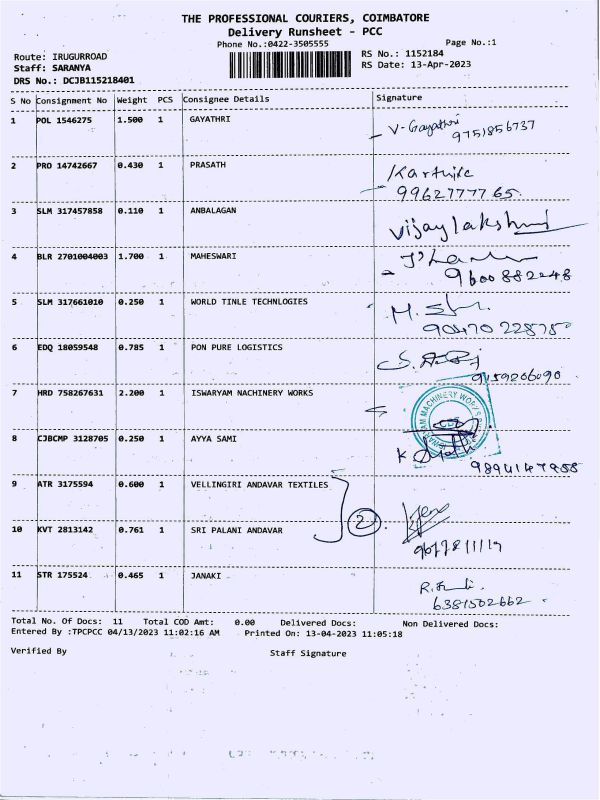 THE PROFESSIONAL COURIERS, COIMBATORE
Delivery Runsheet - PCC
Phone No.:0422-3505555 Page No.:1
Route: IRUGURROAD RS No.: 1152184
Staff: SARANYA RS Date: 13-Apr-2023
DRS No.: DCJB115218401
S No Consignment No Weight PCS Consignee Details Signature
1 POL 1546275 1.500 1 GAYATHRI V-Gayathri
9751856737
2 PRO 14742667 0.430 1 PRASATH Karthika
9962777765
3 SLM 317457858 0.110 1 ANBALAGAN vijaylakshmi
4 BLR 2701004003 1.700 1 MAHESWARI
9600882248
5 SLM 317661010 0.250 1 WORLD TINLE TECHNLOGIES
6 EDQ 18059548 0.785 1 PON PURE LOGISTICS
9159206090
7 HRD 758267631 2.200 1 ISWARYAM NACHINERY WORKS
8 CJBCMP 3128705 0.250 1 AYYA SAMI
9894147958
9 ATR 3175594 0.600 1 VELLINGIRI ANDAVAR TEXTILES
2
10 KVT 2813142 0.761 1 SRI PALANI ANDAVAR
11 STR 175524 0.465 1 JANAKI
6381502662
Total No. Of Docs: 11 Total COD Amt: 0.00 Delivered Docs: Non Delivered Docs:
Entered By :TPCPCC 04/13/2023 11:02:16 AM Printed On: 13-04-2023 11:05:18
Verified By Staff Signature